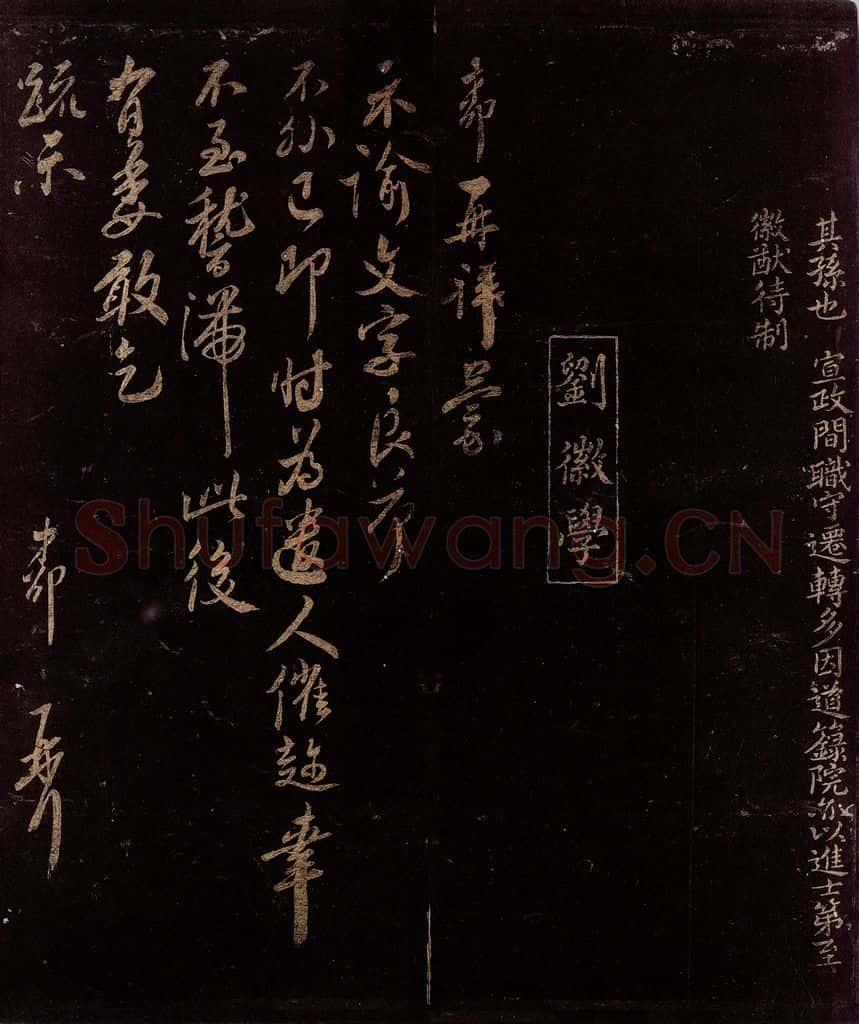 其孫也宣政間職守遷轉多因道籙院亦以進士第至
徽猷待制
劉徽學
再拜蒙
示諭文字良荷
不外已即時為遣人催趁幸
不至稽滯此後
有委敢乞
疏示
再拜
Shufawang.CN